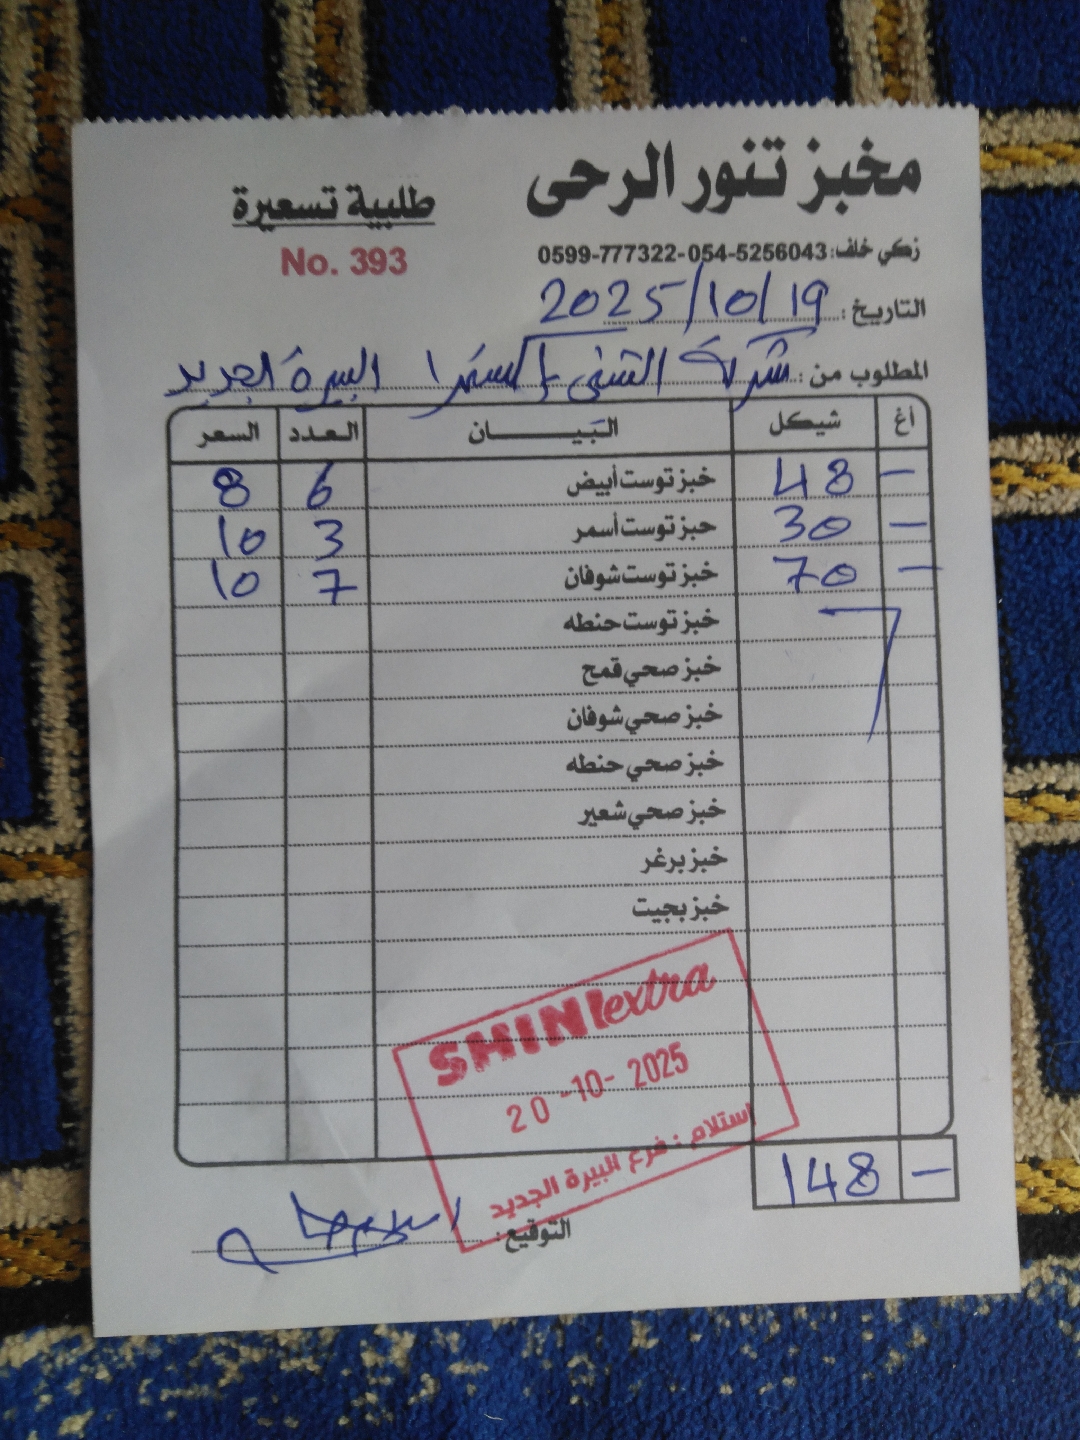 مخبز تنور الرحى
طلبية تسعيرة
No. 393
زكي خلف: 054-5256043-0599-777322
التاريخ: 2025/10/19
المطلوب من: شركة الشني إكسترا البيرة الجديد
أغ شيكل البيان العدد السعر
- 48 خبز توست أبيض 6 8
- 30 خبز توست أسمر 3 10
- 70 خبز توست شوفان 7 10
خبز توست حنطه
خبز صحي قمح
خبز صحي شوفان
خبز صحي حنطه
خبز صحي شعير
خبز برغر
خبز بجيت
SHINI extra
20-10-2025
استلام: فرع البيرة الجديد
- 148
التوقيع: